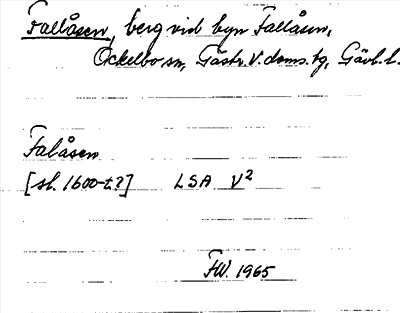 Fallåsen, berg vid byn Fallåsen,
Ockelbo sn, Gästr. V. doms. tg, Gävl. l.
Falåsen
[sl. 1600-t.?] LSA V²
FW. 1965